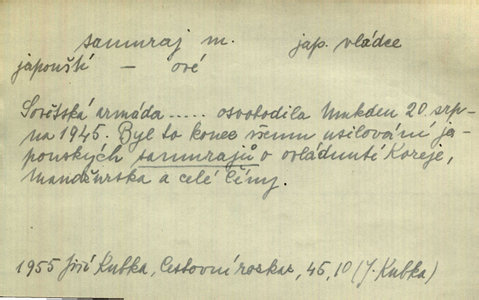 samuraj m. jap. vládce
japonští — ové
Sovětská armáda ..... osvobodila Mukden 20. srp-
na 1945. Byl to konec všemu usilování ja-
ponských samurajů o ovládnutí Koreje,
Mandžurska a celé Číny.
1955 Jiří Kubka, Cestovní rozkaz, 45, 10 (J. Kubka)